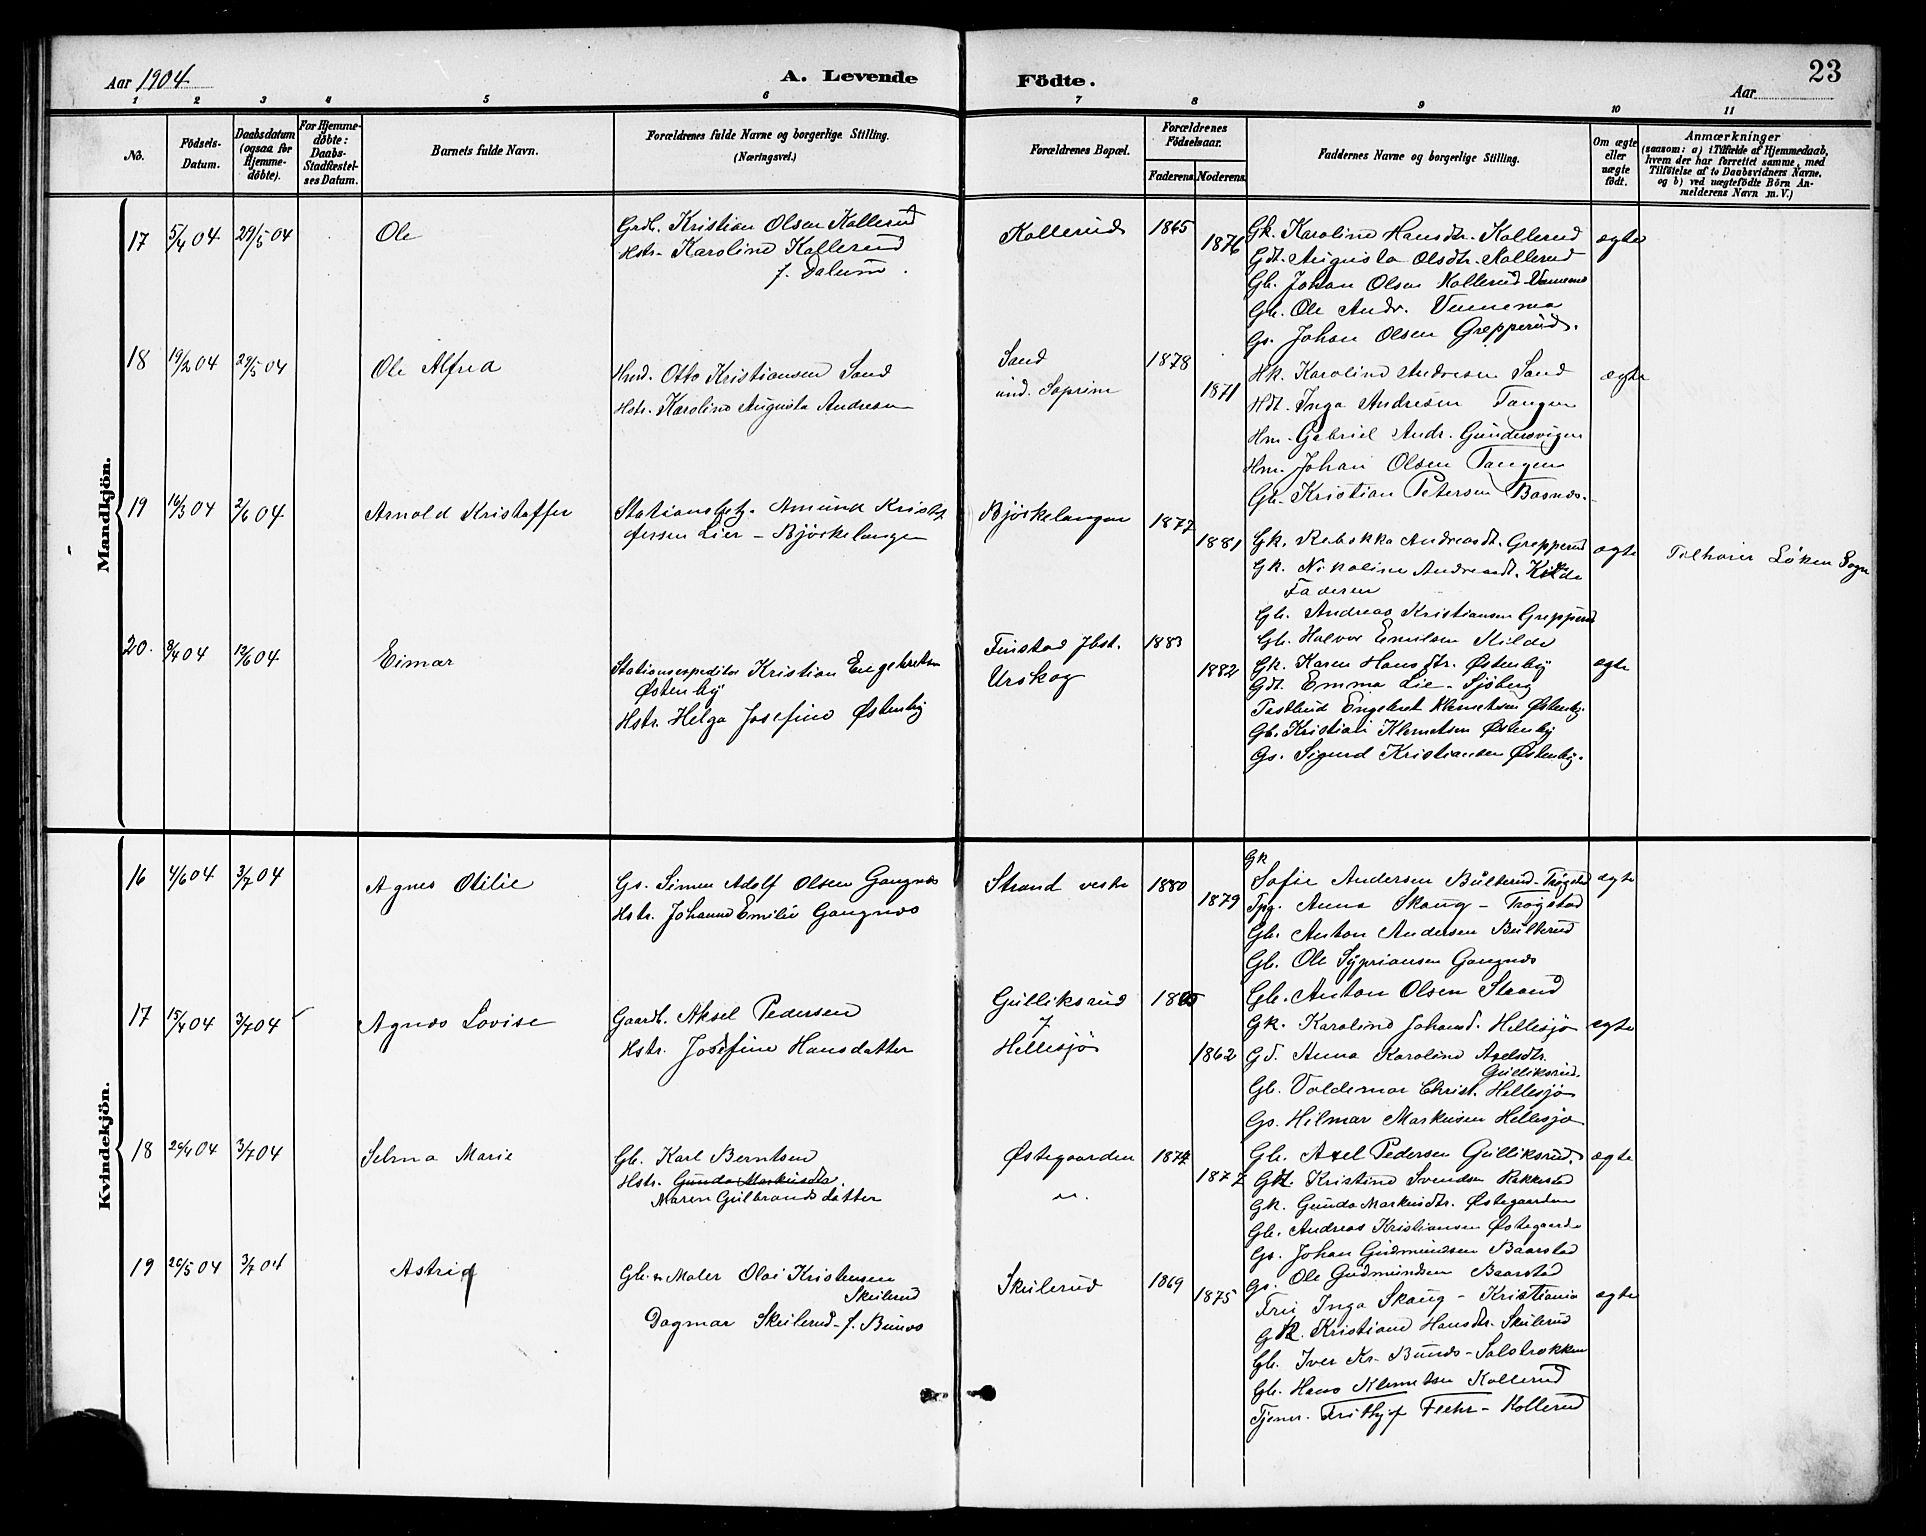 Aar 1904
A. Levende
Födte.
23
Aar
1 2 3 4 5 6 7 8 9 10 11
No.
Födsels-
Datum.
Daabsdatum
(ogsaa for
Hjemme-
döbte).
For Hjemme-
döbte:
Daabs-
Stadfæstel-
ses Datum.
Barnets fulde Navn.
Forældrenes fulde Navne og borgerlige Stilling.
(Næringsvei.)
Forældrenes Bopæl.
Forældrenes
Födselsaar.
Faderens.
Moderens.
Faddernes Navne og borgerlige Stilling.
Om ægte
eller
uægte
födt.
Anmærkninger
(saasom: a) i Tilfælde af Hjemmedaab,
hvem der har forrettet samme, med
Tilföielse af to Daabsvidners Navne.
og b) ved uægtefödte Börn An-
melderens Navn m. V.)
Mandkjön.
17 5/4 04 29/5 04 Ole
Grdb. Kristian Olsen Kollerud
Hstr. Karoline Kollerud
f. Dalum.
Kollerud 1865 1876
Gk. Karoline Hansdtr. Kollerud
Gdt. Augusta Olsdtr. Kollerud
Gb. Johan Olsen Kollerud-Vennemo
Gb. Ole Andr. Vennemo
Gs. Johan Olsen Grepperud.
ægte
18 19/2 04 29/5 04 Ole Alfred
Hmd. Otto Kristiansen Sand
Hstr. Karoline Augusta Andresen
Sand
und. Soprim
1878 1871
Hk. Karoline Andresen Sand
Hdt. Inga Andresen Tangen
Hm. Gabriel Andr. Gundersvigen
Hm. Johan Olsen Tangen
Gb. Kristian Petersen Bosnes.
ægte
19 16/3 04 2/6 04 Arnold Kristoffer
Stationsbetj. Amund Krist
ofersen Lier - Bjørkelangen
Bjørkelangen 1877 1881
Gk. Rebekka Andreasdt. Grepperud
Gk. Nikoline Andreasdt. Kilde
Faderen
Gb. Andreas Kristiansen Grepperud
Gb. Halvor Emilsen Kilde
ægte
Tilhører Løken Sogn
20. 9/4 04 12/6 04 Eimar
Stationsexpeditør Kristian Engebretsen
Østenby
Hstr. Helga Josefine Østenby
Finstad Jbst.
Urskog
1883 1882
Gk. Karen Hansdtr. Østenby
Gdt. Emma Lie - Sjöberg
Postbud Engebret Klemetsen Østenby.
Gb. Kristian Klemetsen Østenby
Gs. Sigurd Kristiansen Østenby.
ægte
Kvindekjön.
16 4/6 04 3/7 04 Agnes Otilie
Gs. Simen Adolf Olsen Gangnes
Hstr. Johanne Emilie Gangnes
Strand vestre 1880 1879
Gk
Sofie Andersen Bulterud-Trøgstad
Tpg. Anna Skaug - Trøgstad
Gb. Anton Andersen Bulterud
Gb. Ole Sypriansen Gangnes
Gb. Anton Olsen Strand
ægte
17 15/4 04 3/7 04 Agnes Lovise
Gaardb. Aksel Pedersen
Hstr. Josefine Hansdatter
Gulliksrud
f
Hellesjø
1865 1862
Gk. Karoline Johansd. Hellesjø
Gd. Anna Karoline Axelsdtr.
Gulliksrud.
Gb. Voldemar Christ. Hellesjø
Gs. Hilmar Markusen Hellesjø
Gb. Axel Pedersen Gulliksrud.
ægte
18 29/4 04 3/7 04 Selma Marie
Gb. Karl Berntsen
Hstr. Gunda Markusdtr.
Maren Gulbrandsdatter
Østegaarden
"
1874 1877
Gdt. Kristine Svendsen Rakkestad
Gk. Gunda Markusdtr. Østegaarden
Gb. Andreas Kristiansen Østegaarden
Gs. Johan Gudmundsen Baarstad
Gs. Ole Gudmundsen Baarstad
ægte
19 20/5 04 3/7 04 Astrid
Gb. & Maler Olai Kristensen
Skulerud
Dagmar Skulerud - f. Bunes
Skulerud 1869 1875
Fru Inga Skaug - Kristiania
Gk. Kristiane Hansdtr. Skulerud
Gb. Iver Kr. Bunes - Solbrækken
Gb. Hans Klemetsen Kollerud
Tjener. Frithjof Flehr - Kollerud
ægte